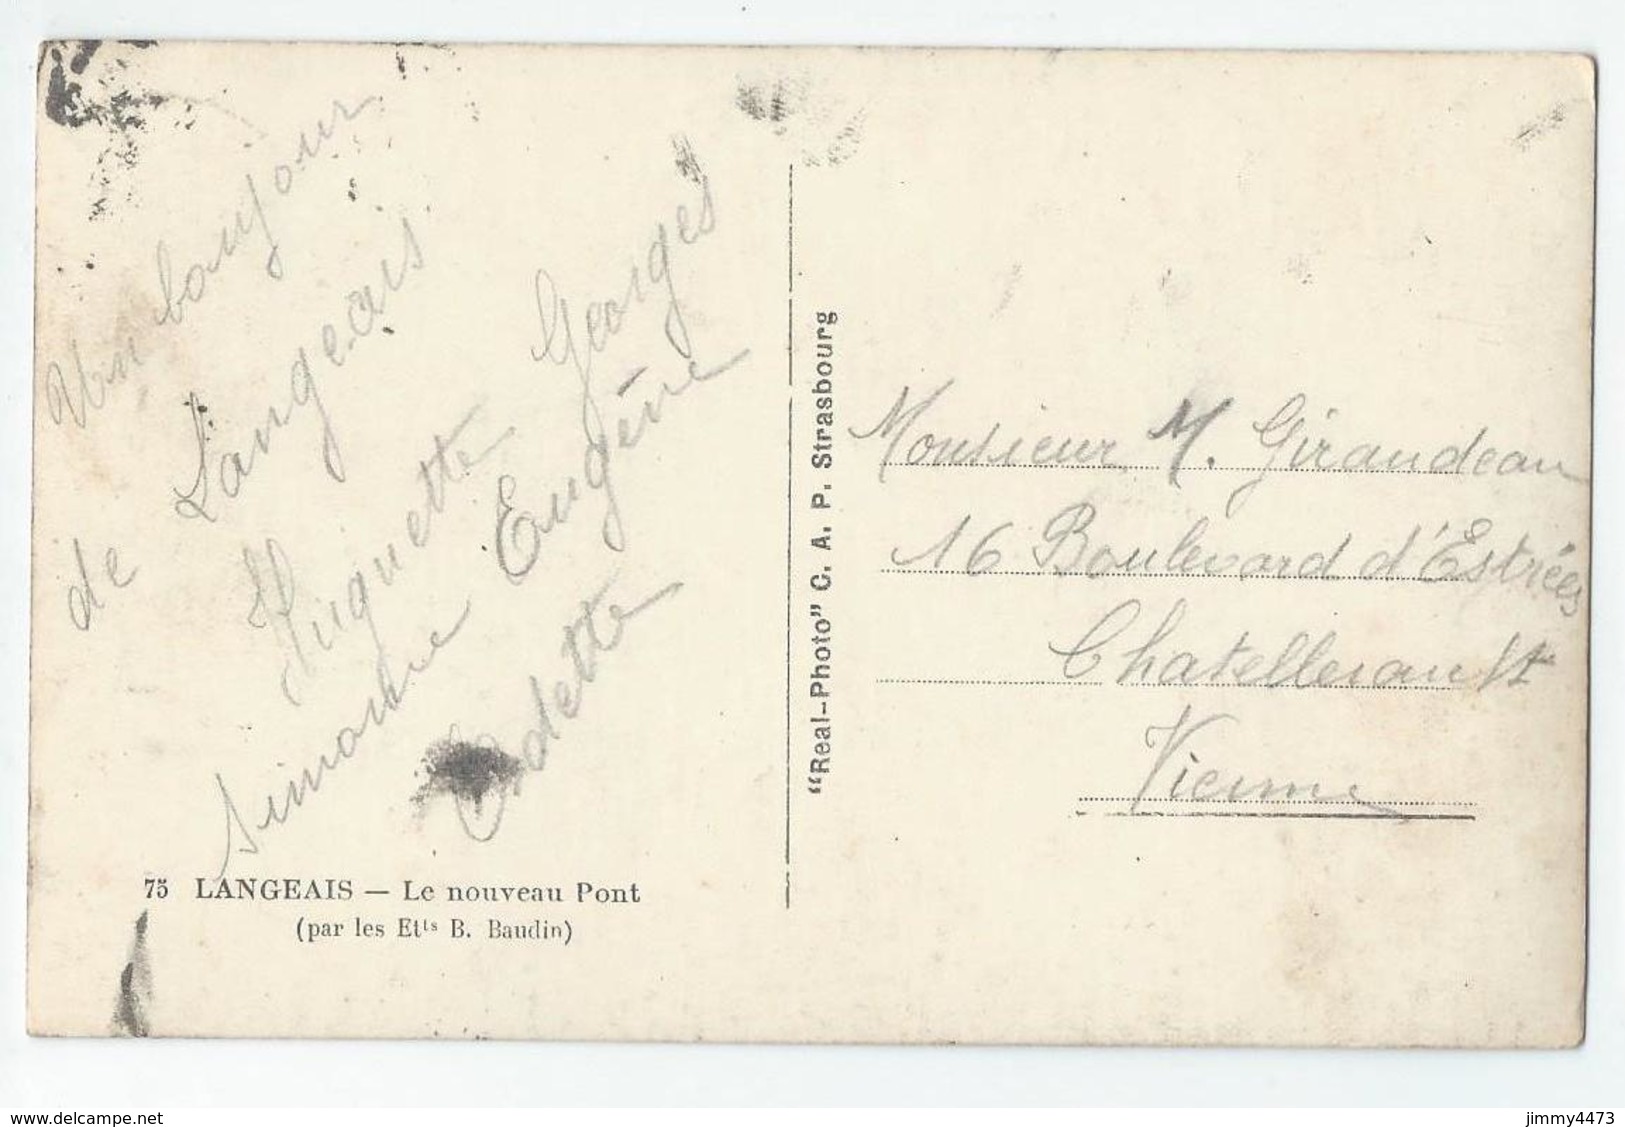 Un bonjour
de Langeais
Huguette Georges
Simonne Eugène
Odette
75 LANGEAIS — Le nouveau Pont
(par les Etts B. Baudin)
"Real-Photo" C. A. P. Strasbourg
Monsieur M. Giraudeau
16 Boulevard d'Estrées
Chatellerault
Vienne
www.delcampe.net
jimmy4473